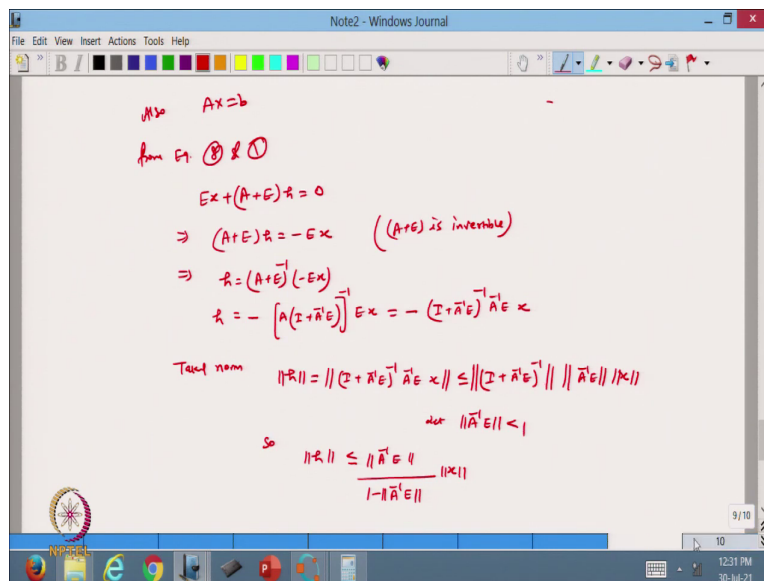 Note2 - Windows Journal
File Edit View Insert Actions Tools Help
Also Ax=b
from Eq. ⑧ & ①
Ex+(A+E)h=0
⇒ (A+E)h=-Ex ((A+E) is invertible)
⇒ h=(A+E)⁻¹(-Ex)
h=-[A(I+A⁻¹E)]⁻¹Ex=-(I+A⁻¹E)⁻¹A⁻¹E x
Take norm ||h||=||(I+A⁻¹E)⁻¹A⁻¹E x||≤||(I+A⁻¹E)⁻¹|| ||A⁻¹E|| ||x||
let ||A⁻¹E||<1
So ||h|| ≤ ||A⁻¹E|| / (1-||A⁻¹E||) ||x||
9/10
10
NPTEL
12:31 PM
30-Jul-21